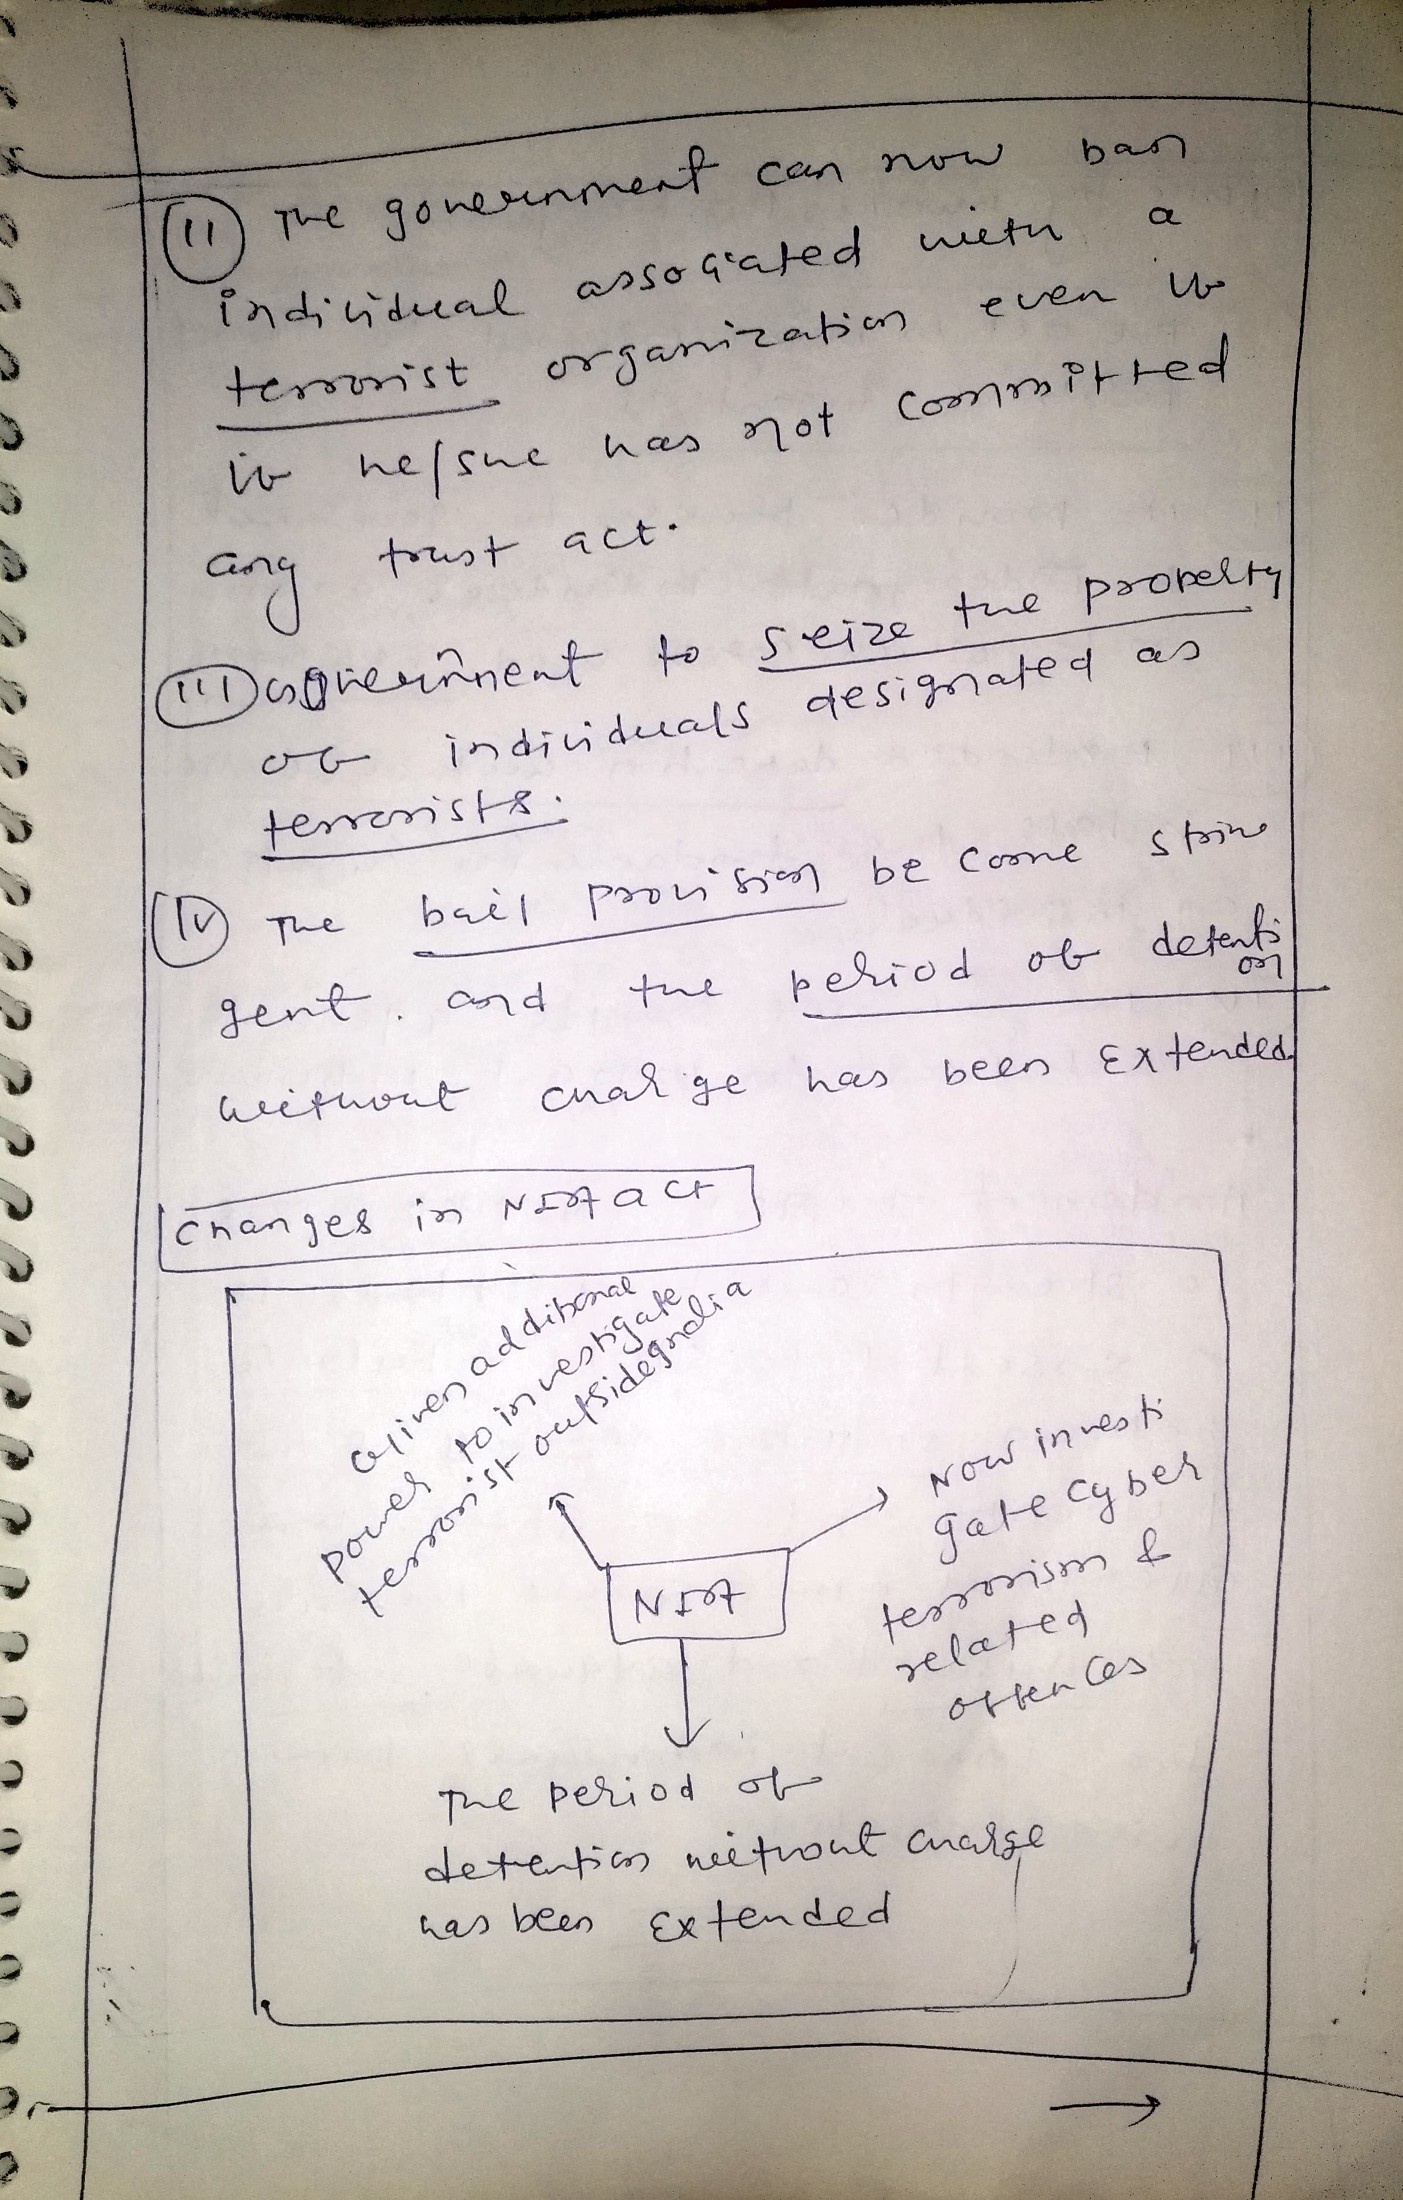 (11) The government can now ban
individual associated with a
terrorist organization even if
if he/she has not committed
any trust act.
(111) government to seize the property
of individuals designated as
terrorists.
(IV) The bail provision be come strin
gent. and the period of detenti
on
without charge has been Extended
Changes in NIA act
Given additional
power to investigate
terrorist outside India
Now investi
gate cyber
terrorism &
related
offences
NIA
The period of
detention without charge
has been Extended